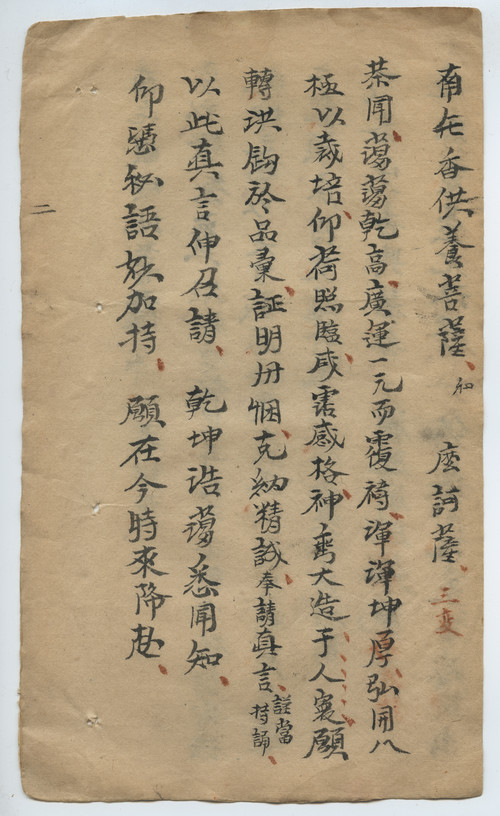 南無香供養菩薩 和 摩訶薩 三变
恭聞蕩蕩乾高廣運一元而覆祷渾渾坤厚弘開八
極以栽培仰荷照臨咸霑感格神垂大造于人寰願
轉洪鈞於品彙証明丹悃克納精誠奉請真言謹當持誦
以此真言伸召請 乾坤浩蕩悉聞知
仰憑秘語既加持 願在今時來降赴
二